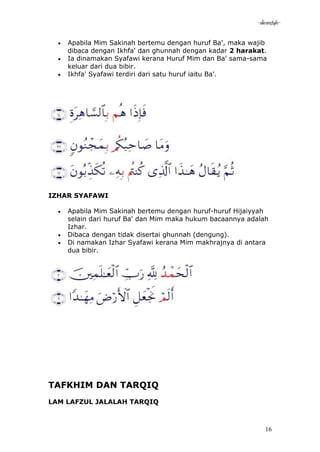 -akranzlgh-
• Apabila Mim Sakinah bertemu dengan huruf Ba', maka wajib
dibaca dengan Ikhfa' dan ghunnah dengan kadar 2 harakat.
• Ia dinamakan Syafawi kerana Huruf Mim dan Ba' sama-sama
keluar dari dua bibir.
• Ikhfa' Syafawi terdiri dari satu huruf iaitu Ba'.
فَإِذَا هُم بِٱلسَّاهِرَةِ ﴿١٤﴾
وَمَا صَاحِبُكُم بِمَجْنُونٍ ﴿٢٢﴾
ثُمَّ يُقَالُ هَـٰذَا ٱلَّذِى كُنتُم بِهِۦ تُكَذِّبُونَ ﴿١٧﴾
IZHAR SYAFAWI
• Apabila Mim Sakinah bertemu dengan huruf-huruf Hijaiyyah
selain dari huruf Ba' dan Mim maka hukum bacaannya adalah
Izhar.
• Dibaca dengan tidak disertai ghunnah (dengung).
• Di namakan Izhar Syafawi kerana Mim makhrajnya di antara
dua bibir.
ٱلْحَمْدُ لِلَّهِ رَبِّ ٱلْعَـٰلَمِينَ
أَلَمْ نَجْعَلِ ٱلْأَرْضَ مِهَـٰدًا
TAFKHIM DAN TARQIQ
LAM LAFZUL JALALAH TARQIQ
16